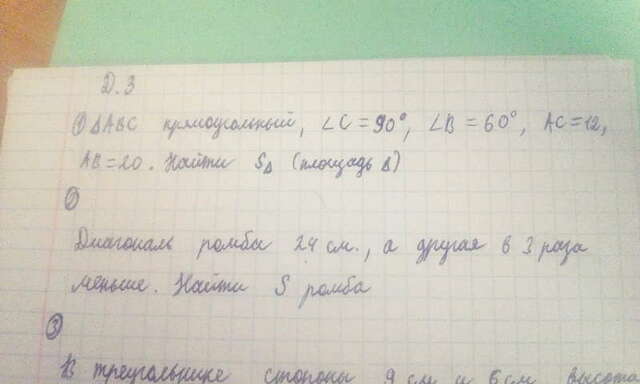 Д.З
① ΔABC прямоугольный, ∠C = 90°, ∠B = 60°, AC = 12,
AB = 20. Найти SΔ (площадь Δ)
②
Диагональ ромба 24 см., а другая в 3 раза
меньше. Найти S ромба
③
В треугольнике стороны 9 см и 6 см высота